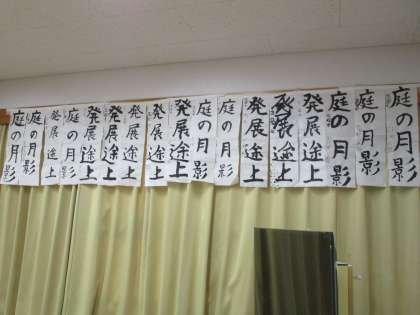 庭の月影
庭の月影
庭の月影
発展途上
発展途上
発展途上
庭の月影
庭の月影
発展途上
発展途上
発展途上
発展途上
発展途上
庭の月影
発展途上
庭の月影
庭の月影